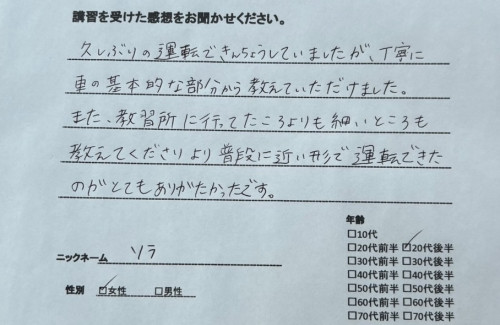 講習を受けた感想をお聞かせください。
久しぶりの運転できんちょうしていましたが、丁寧に
車の基本的な部分から教えていただけました。
また、教習所に行ってたころよりも細いところも
教えてくださりより普段に近い形で運転できた
のがとてもありがたかったです。
ニックネーム ソラ
性別 ☑女性 □男性
年齢
□10代
□20代前半 ☑20代後半
□30代前半 □30代後半
□40代前半 □40代後半
□50代前半 □50代後半
□60代前半 □60代後半
□70代前半 □70代後半